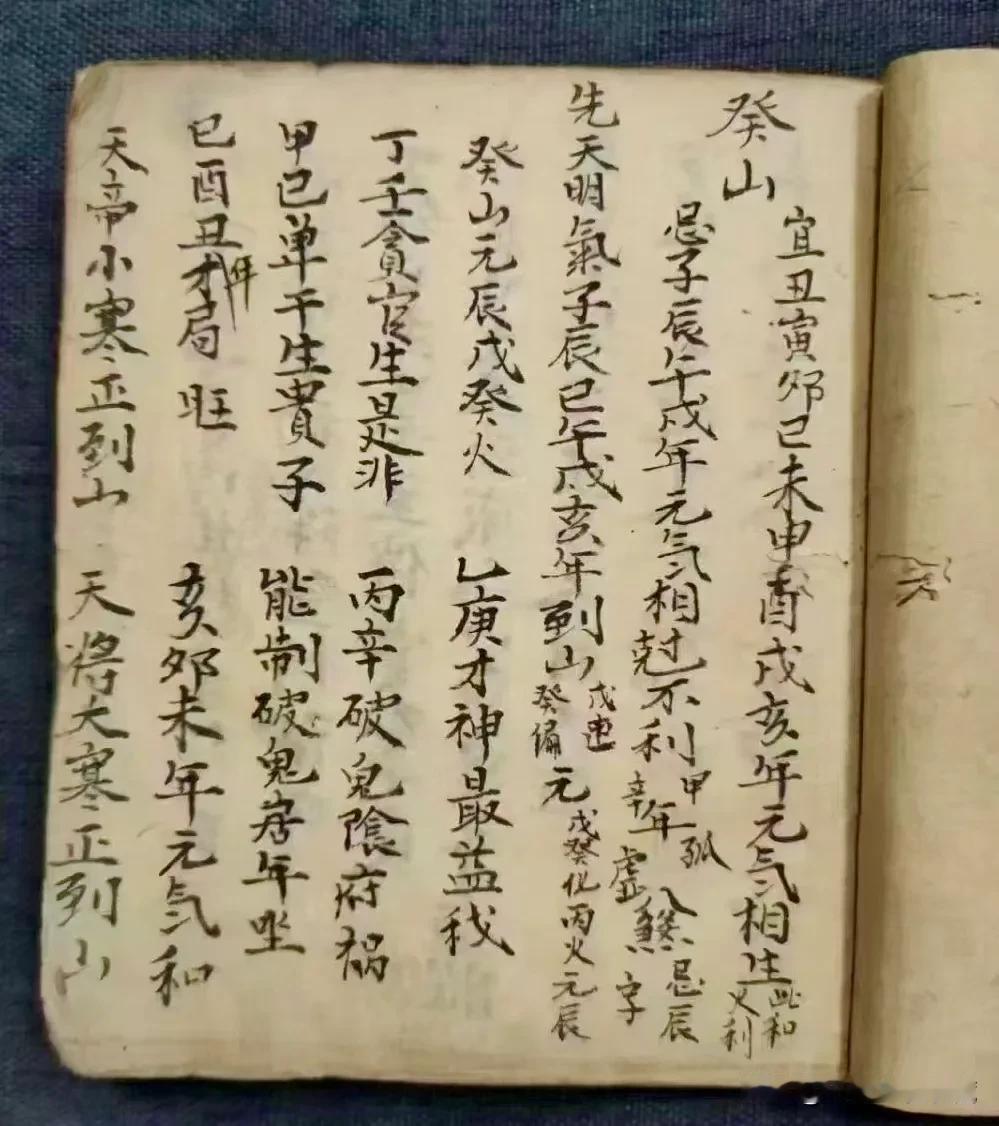 癸山
宜丑寅夘巳未申酉戌亥年元気相生比和又利
忌子辰午戌年元気相尅不利甲辛年孤虚八煞忌辰字
先天明氣子辰巳午戌亥年到山戊癸偏元戊癸化丙火元辰
癸山元辰戊癸火 乙庚才神最益我
丁壬貪官生是非 丙辛破鬼陰府禍
甲己单干生貴子 能制破鬼居年坐
巳酉丑年才局旺 亥夘未年元気和
天帝小寒正到山 天將大寒正到山